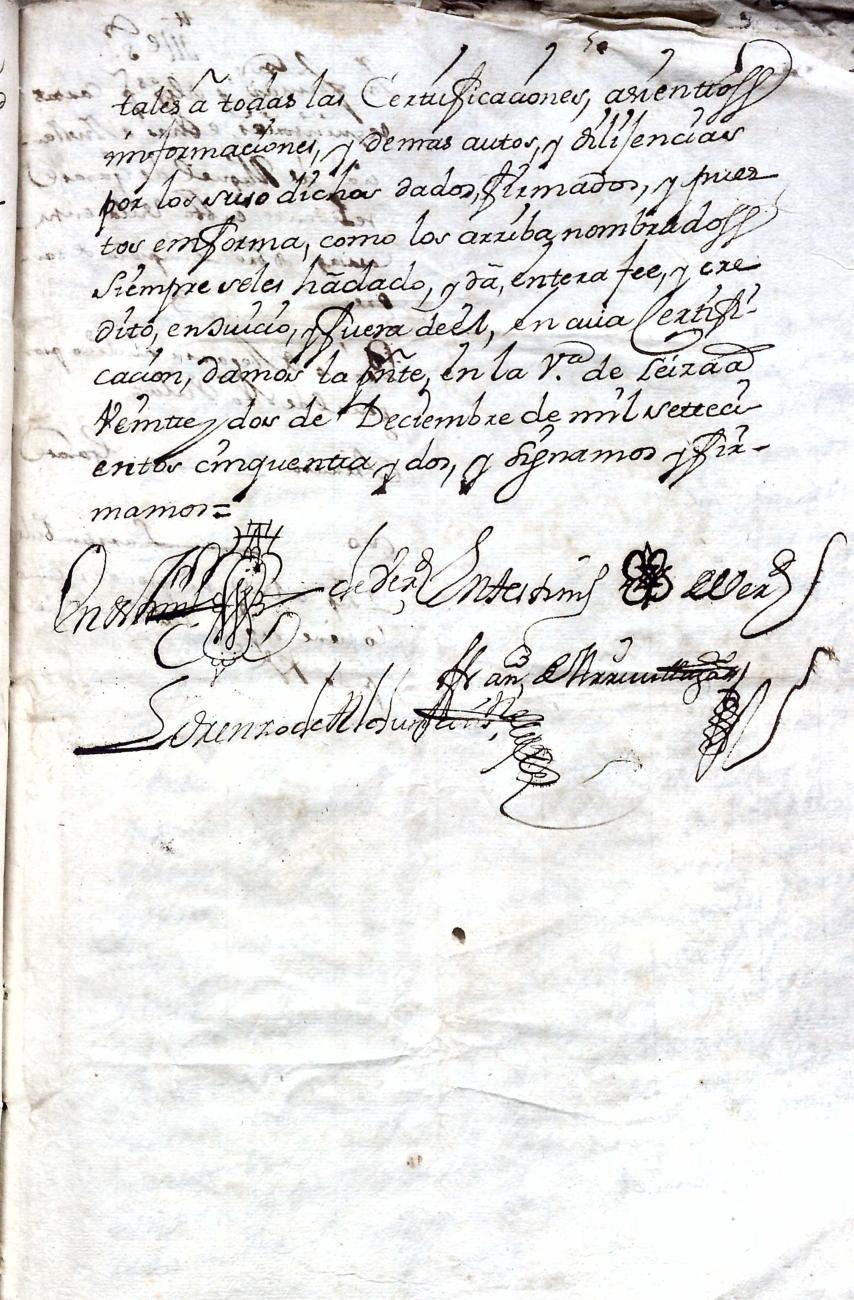 tales â todas las Certificaciones, asientos
informaciones, y demas autos, y dilijencias
por los suso dichos dados, firmados, y pues
tos em forma, como los arriba nombrados
siempre seles hà dado, y dà, entera fee, y cre
dito, en Juicio, y fuera deèl, en cuia Certifi-
cacion, damos la pñte, en la V.ª de Leiza a
Veinte y dos de Deciembre de mil setteci
entos cinquenta y dos, y signamos y fir-
mamos =
En testim.º de Verd En testim.º de Verd
Fran.co de
Lorenzo de